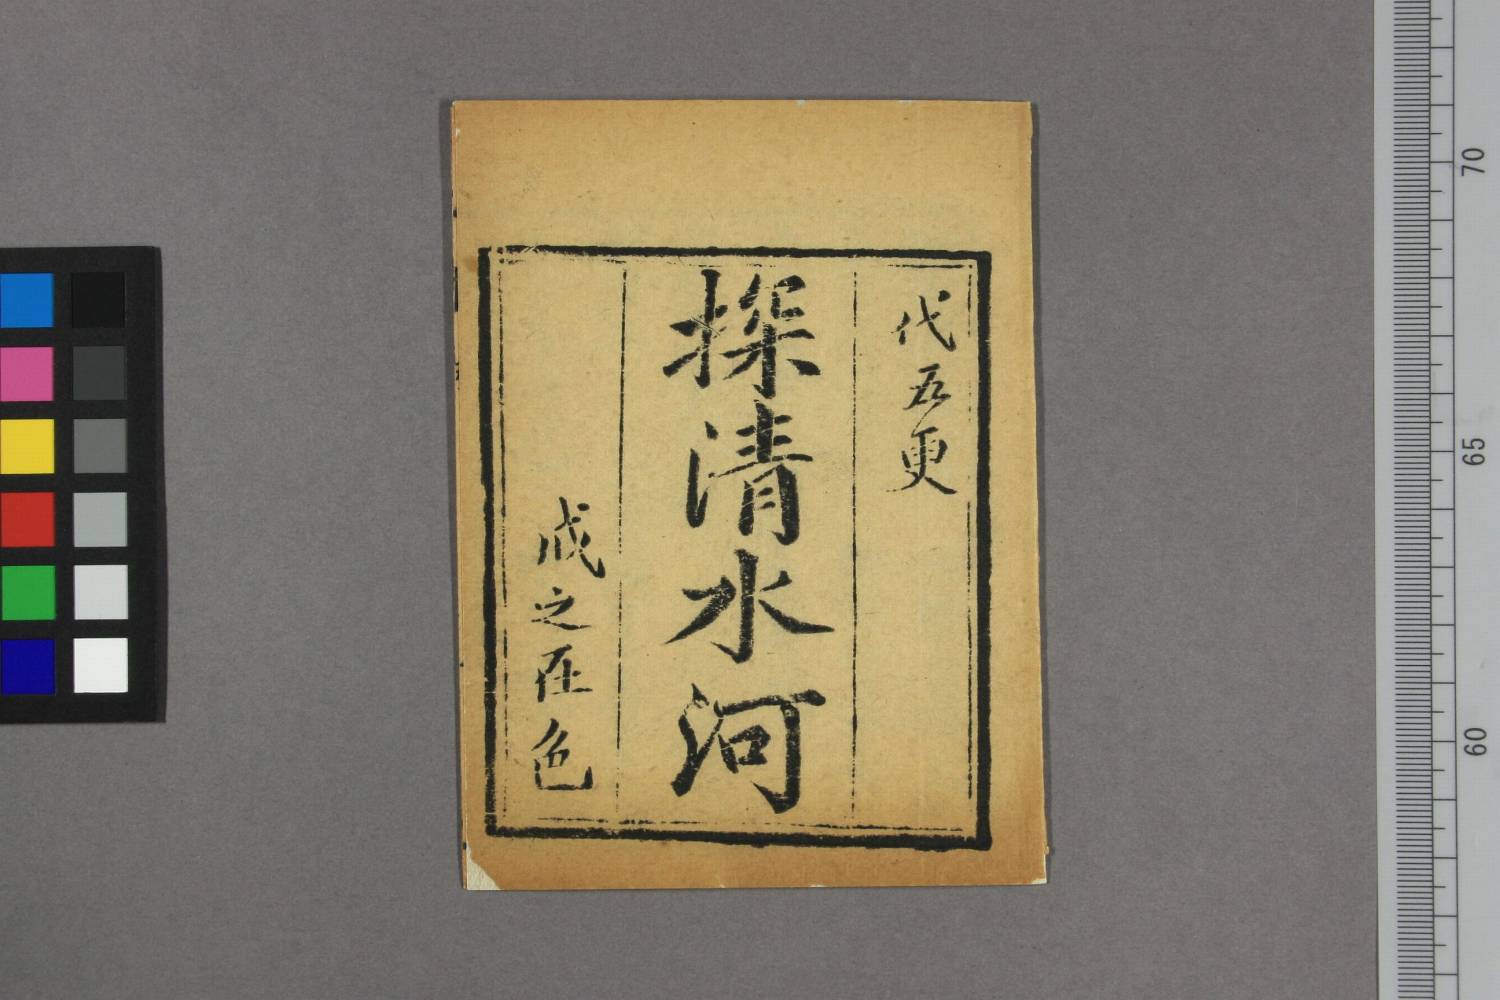 代五更
探清水河
戒之在色
70
65
60